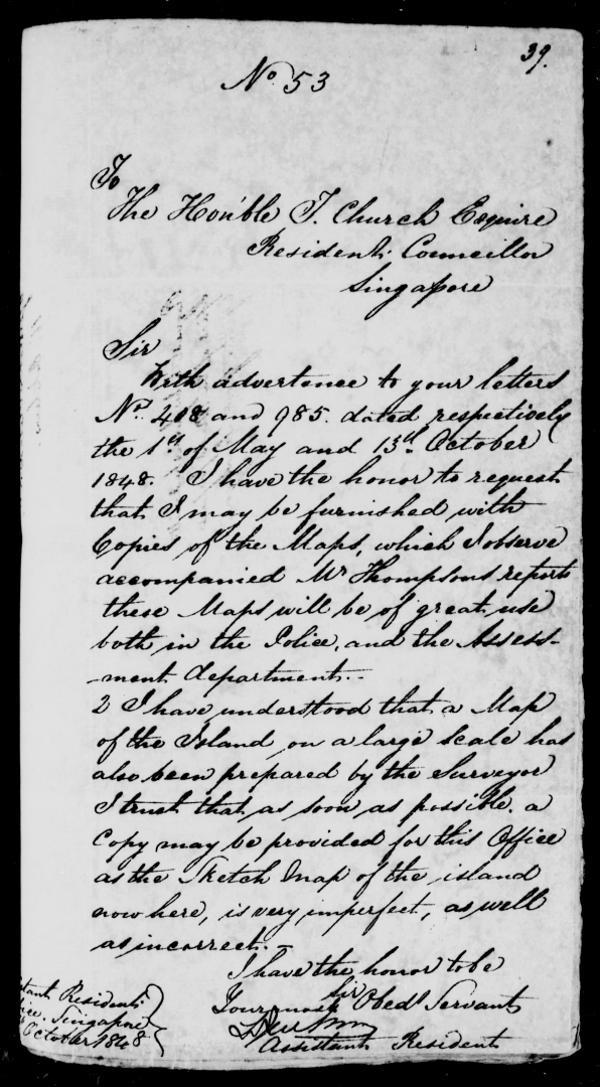 39.
No. 53
To
The Hon'ble T. Church Esquire
Resident Councillor
Singapore
Sir
With advertence to your letters
No. 408 and 985. dated respectively
the 1st of May and 13th October
1848. I have the honor to request
that I may be furnished with
Copies of the Maps, which I observe
accompanied Mr Thompsons reports
these Maps will be of great use
both in the Police, and the Assess-
-ment department.
2 I have understood that a Map
of the Island on a large Scale has
also been prepared by the Surveyor
I trust that as soon as possible. a
Copy may be provided for this Office
as the Sketch Map of the island
now here, is very imperfect, as well
as incorrect.-
I have the honor to be
Sir
Your most Obedt Servant
Assistant Resident
tant Resident
ice. Singapore
October 1848